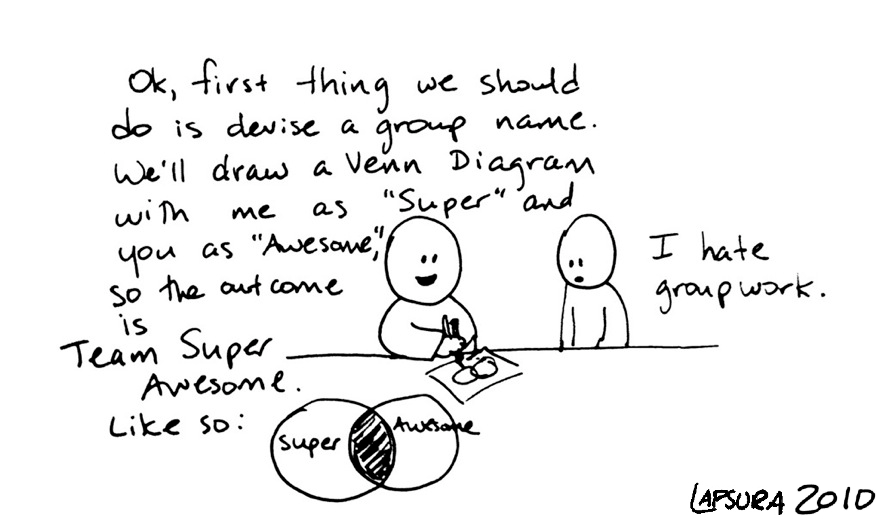 Ok, first thing we should
do is devise a group name.
We'll draw a Venn Diagram
with me as "Super" and
you as "Awesome,"
so the outcome
is
Team Super
Awesome.
Like so:
Super
Awesome
I hate
groupwork.
LAPSURA 2010